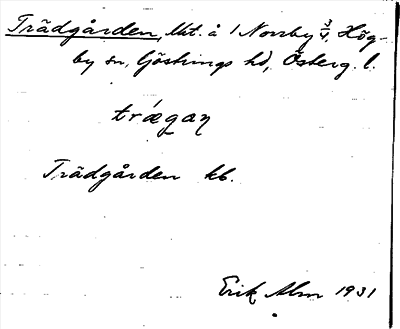 Trädgården, lht. å 1 Norrby 3/4, Hög-
by sn, Göstrings hd, Österg. l.
trǽgaɳ
Trädgården kb.
Erik Alm 1931